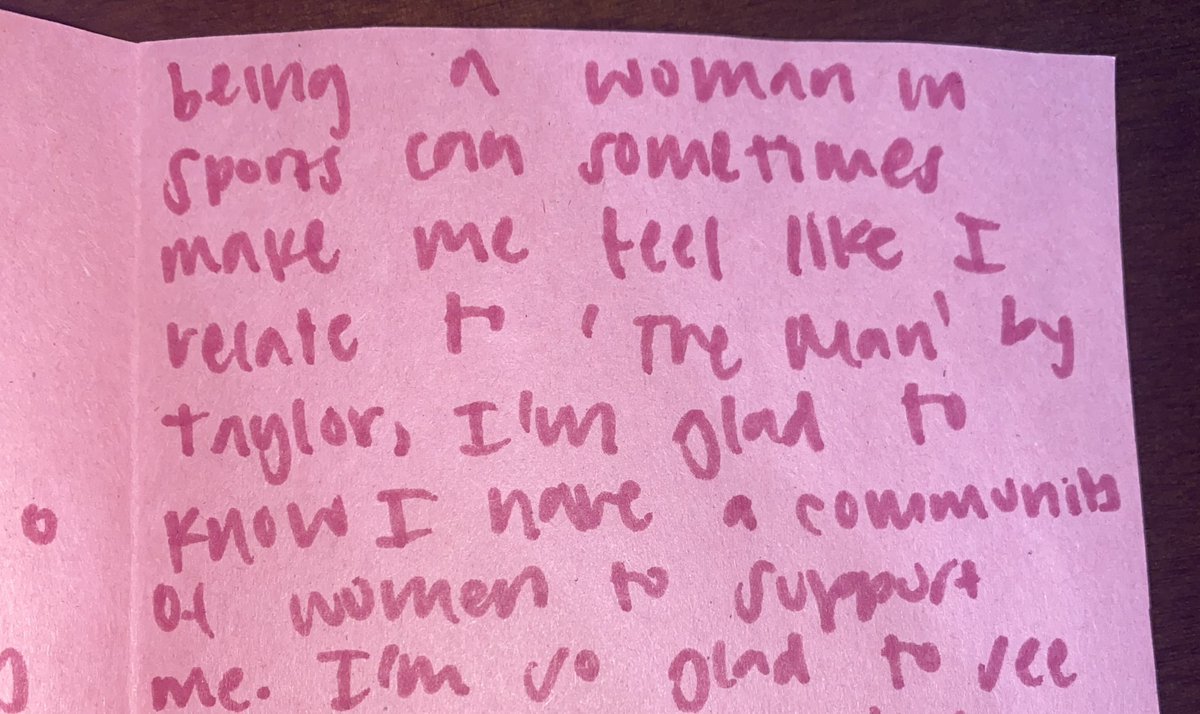 being a woman in
sports can sometimes
make me feel like I
relate to 'The Man' by
Taylor, I'm glad to
know I have a community
of women to support
me. I'm so glad to see